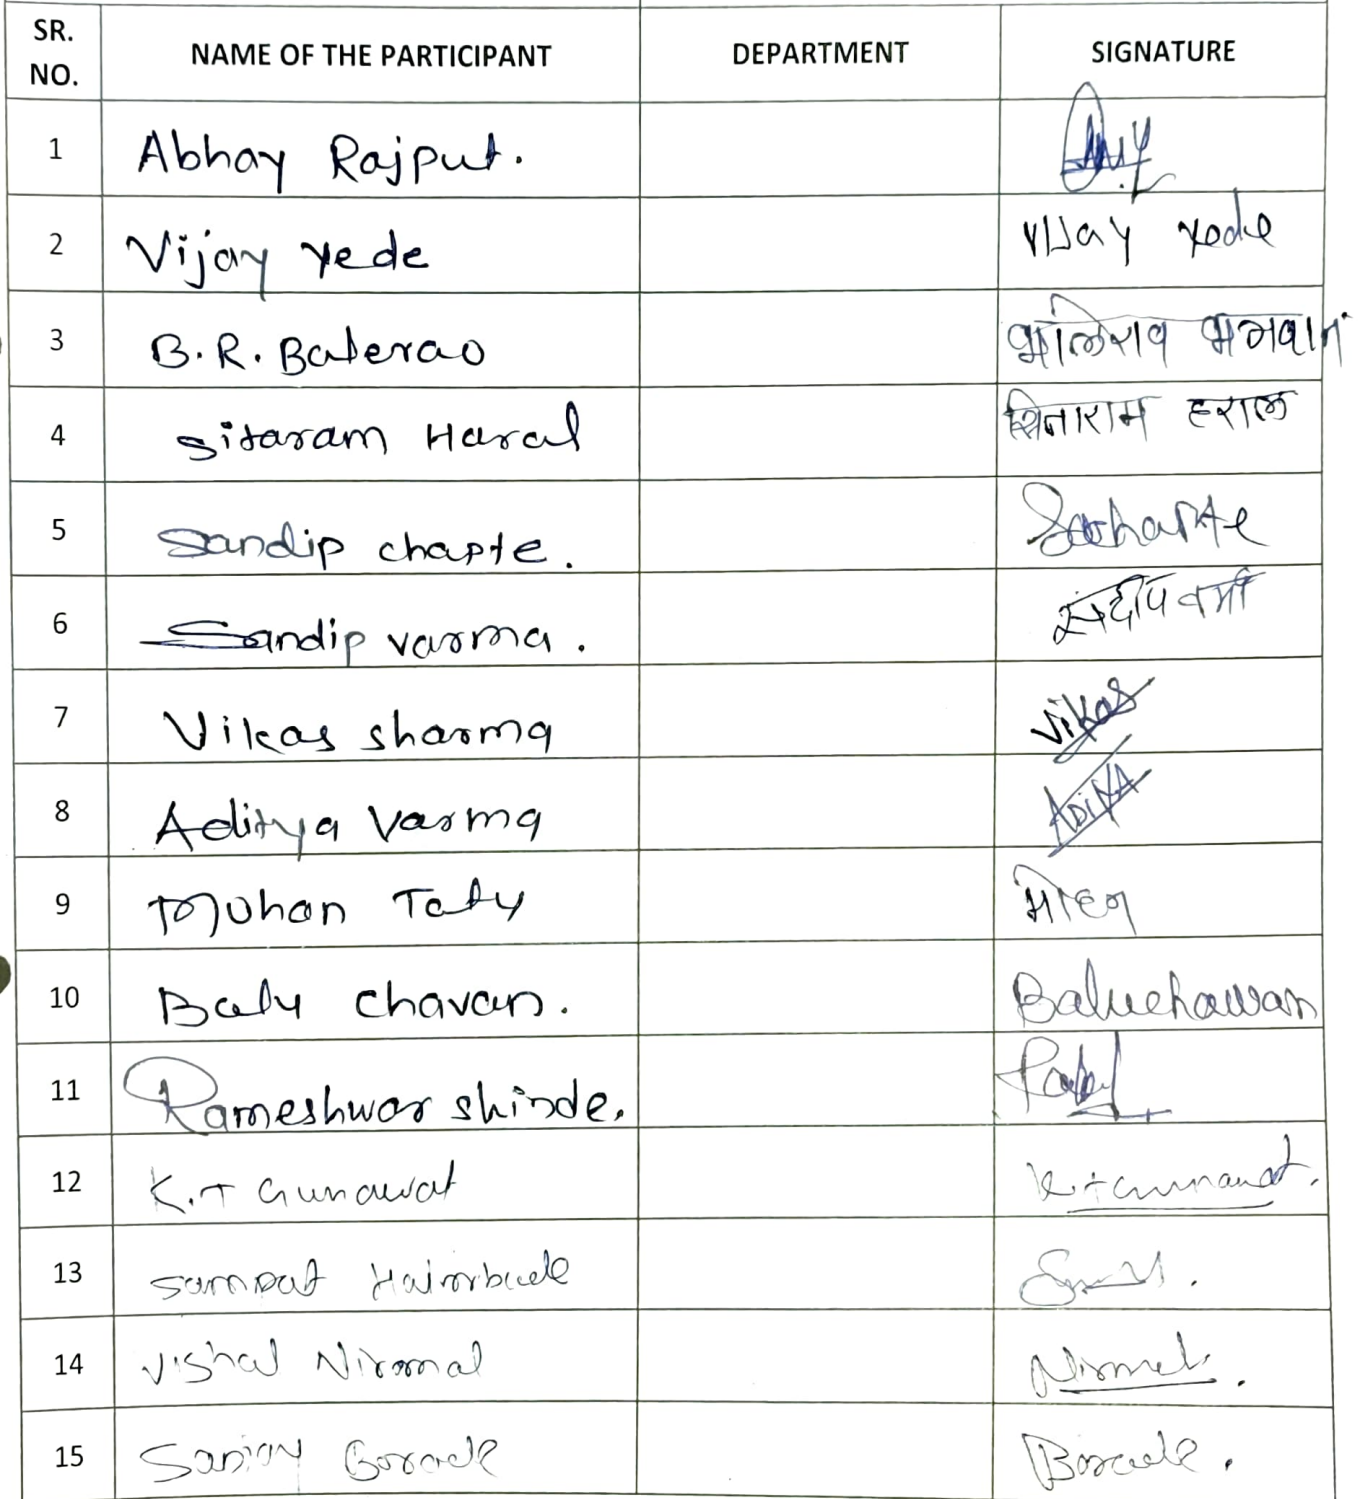 SR. NO. NAME OF THE PARTICIPANT DEPARTMENT SIGNATURE
1 Abhay Rajput.
2 Vijay Yede Vijay Yede
3 B.R. Balerao भालेराव भगवान
4 Sitaram Haral सिताराम हराळ
5 Sandip chapte.
6 Sandip varma. संदीप वर्मा
7 Vikas sharma Vikas
8 Aditya Varma
9 Mohan Taty मोहन
10 Balu chavan. Baluchawan
11 Rameshwar shinde.
12 K.T Gunawat K.T Gunawat.
13 Sampat
14 Vishal Nirmal Nirmal.
15 Sanjay Borade Borade.